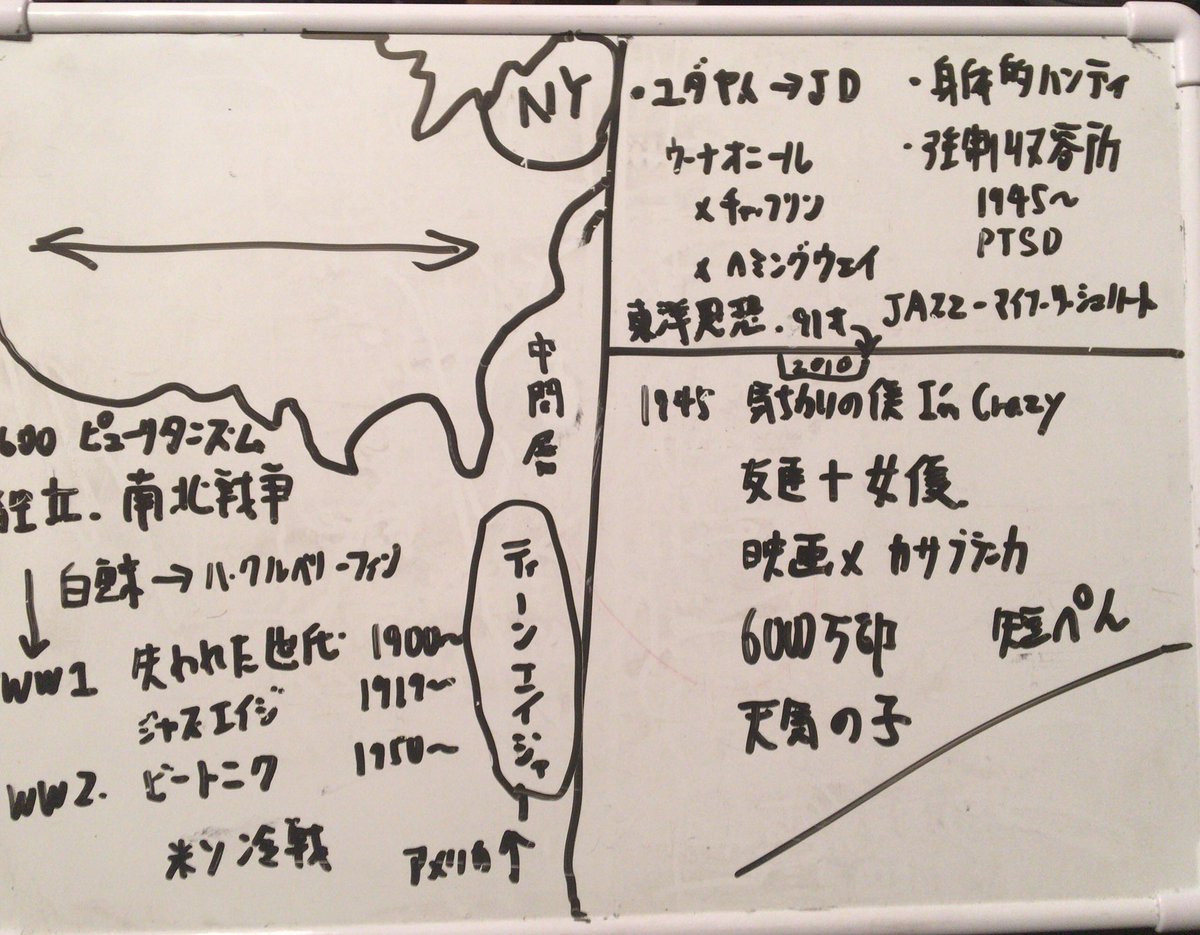 NY
中間層
600 ピューリタニズム
独立. 南北戦争
白鯨→ハックルベリーフィン
WW1 失われた世代 1900〜
ジャズエイジ 1919〜
WW2. ビートニク 1950〜
米ソ冷戦
ティーンエイジャ
アメリカ个
・ユダヤ人→JD
ウーナオニール
×チャップリン
×ヘミングウェイ
東洋思想. 91才
・身体的ハンディ
・強制収容所
1945〜
PTSD
JAZZーマイフーリッシュハート
2010
1945 気ちがいの僕 I'm Crazy
友達+女優.
映画× カサブランカ
6000万部 短ぺん
天気の子